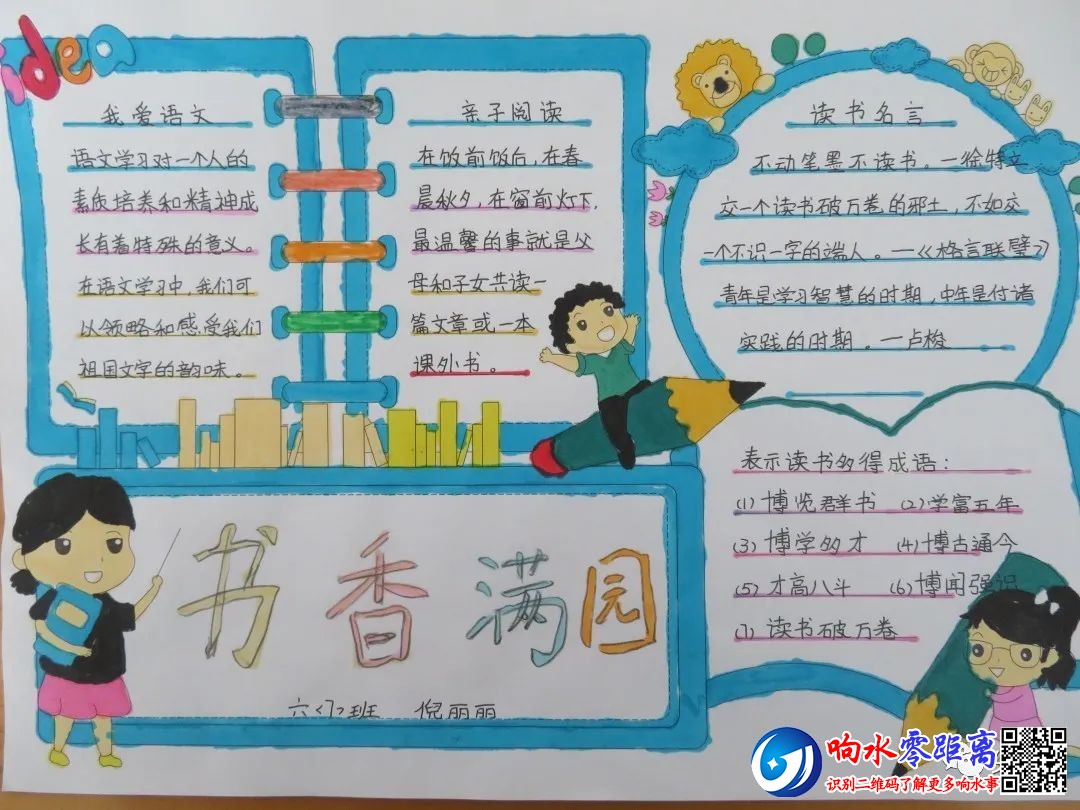 idea
我爱语文
语文学习对一个人的
素质培养和精神成
长有着特殊的意义。
在语文学习中,我们可
以领略和感受我们
祖国文字的韵味。
亲子阅读
在饭前饭后,在春
晨秋夕,在窗前灯下,
最温馨的事就是父
母和子女共读一
篇文章或一本
课外书。
读书名言
不动笔墨不读书。—徐特文
交一个读书破万卷的邪土,不如交
一个不识一字的端人。—《格言联璧》
青年是学习智慧的时期,中年是付诸
实践的时期。—卢梭
表示读书多得成语:
(1) 博览群书 (2) 学富五年
(3) 博学多才 (4) 博古通今
(5) 才高八斗 (6) 博闻强识
(7) 读书破万卷
书香满园
六<7>班 倪丽丽
响水零距离
识别二维码了解更多响水事